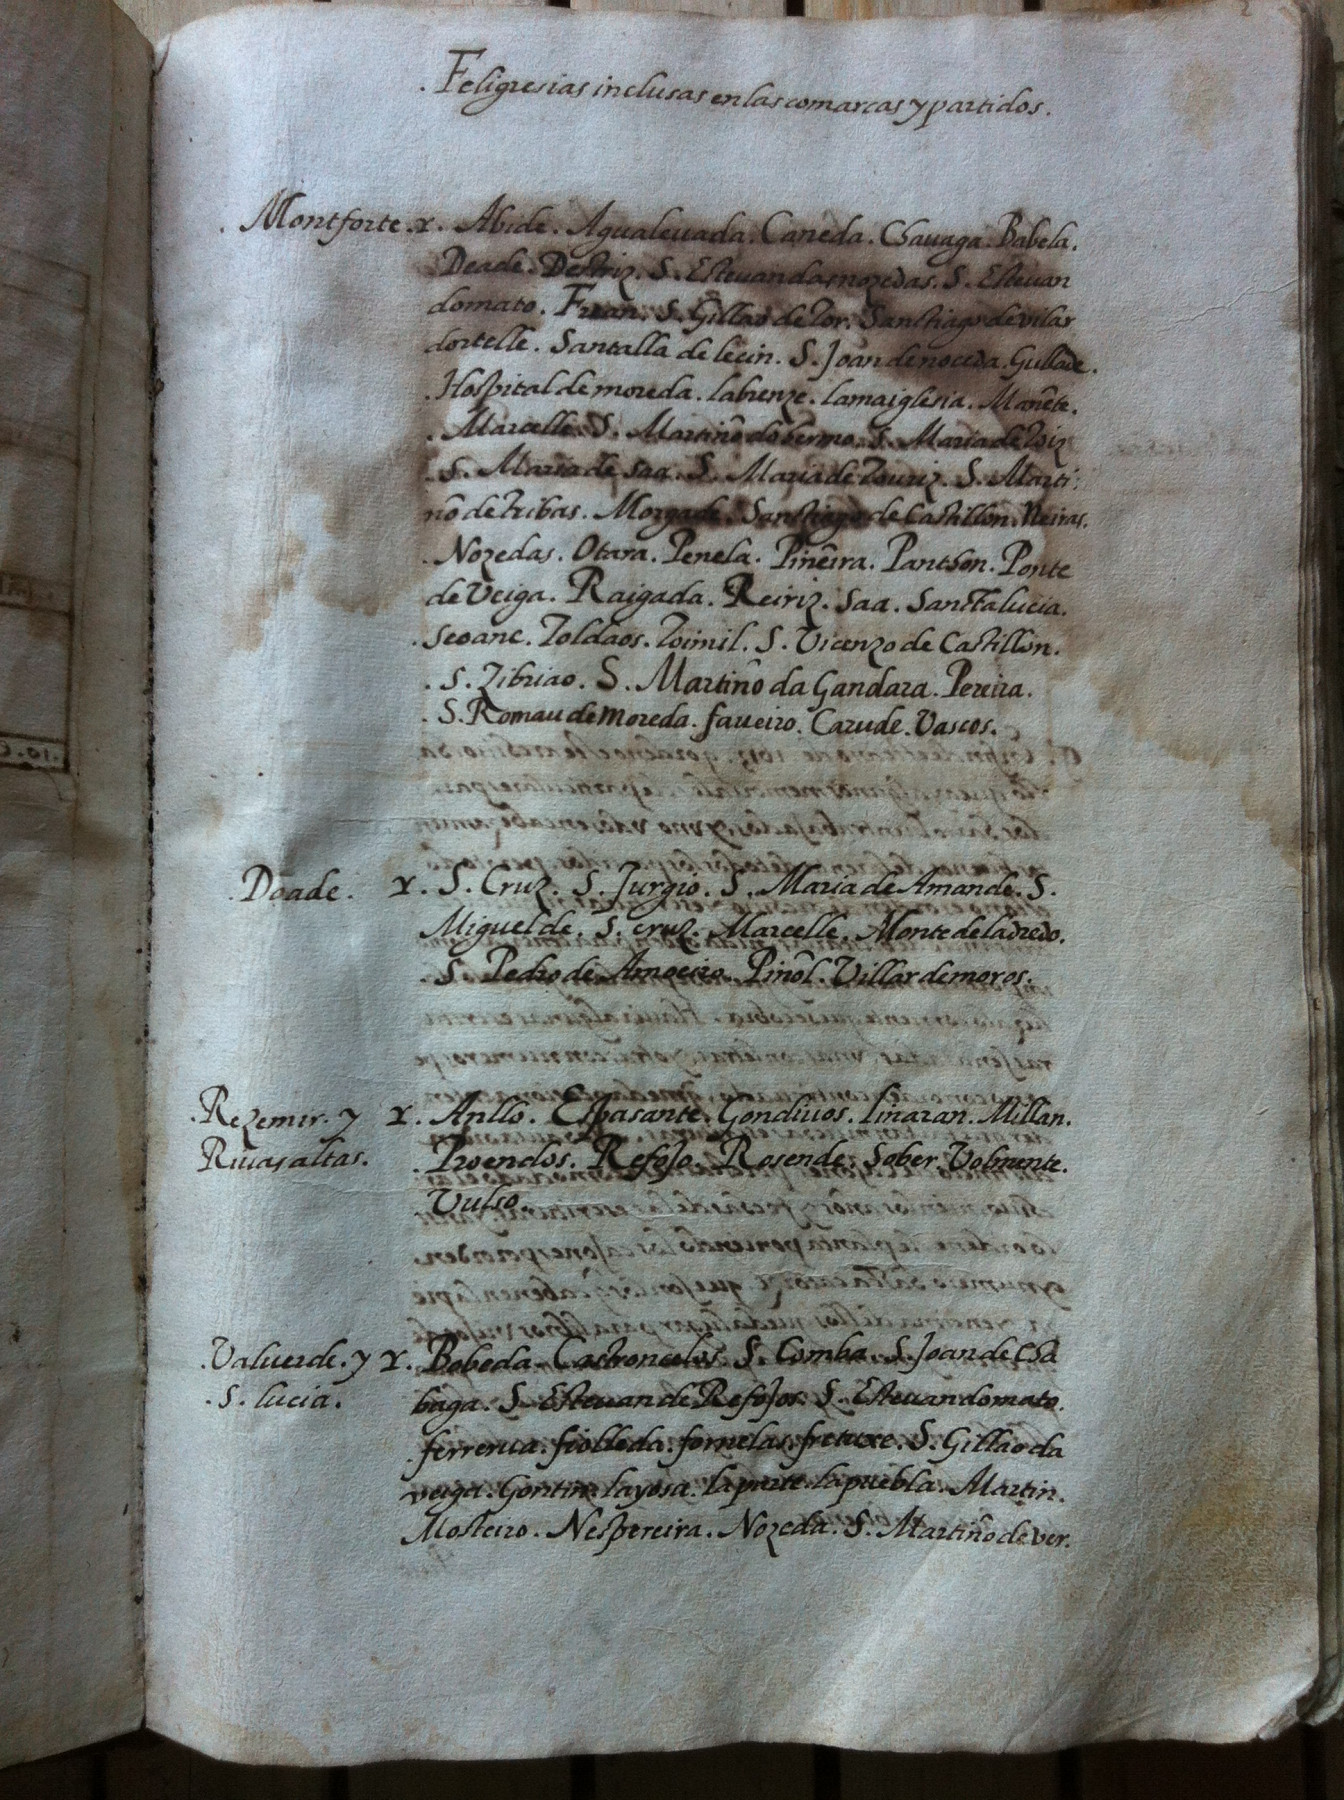 . Feligresias inclusas en las comarcas y partidos.
. Montforte. r. Abide. Agualeuada. Caneda. Chauaga. Babela.
Deade. Destriz. S. Esteuan das nozedas. S. Esteuan
domato. Fuan. S. Gillao de Tor. Sanctiago de vilar
dortelle. Santalla de lecin. S. Joan de noceda. Gullade.
. Hospital de moreda. labrenze. lamaiglesia. Mañête.
. Marcelle. S. Martiño do bermo. S. Maria de Toiz
. S. Maria de saa. S. Maria de Touriz. S. Marti:
ño de tribas. Morgade. Sanctiago de Castillon. Neiras.
. Nozedas. Otara. Penela. Piñeira. Panthon. Ponte
de Veiga. Raigada. Reiriz. saa. Sancta lucia.
. Seoane. Toldaos. Toimil. S. Vicenzo de Castillon.
. S. Zibriao. S. Martiño da Gandara. Pereira.
. S. Romau de Moreda. faueiro. Carude. Vascos.
. Doade. r. S. Cruz. S. Jurgio. S. Maria de Amande. S.
Miguel de. S. cruz. Marcelle. Monte de ladredo.
. S. Pedro de Amoeiro. Piñol. Villar de moros.
. Rezemir. y r. Anllo. Espasante. Gondiuos. liñaran. Millan.
Riuas altas. . Proendos. Refojo. Rosende. Sober. Volmente.
Vulso.
. Valuerde. y r. Bobeda. Castroncelos. S. Comba. S. Joan de Cha
. S. lucia. baga. S. Esteuan de Refojos. S. Esteuan domato.
. ferrerua. fiolleda. fornelas. fretuxe. S. Gillao da
veiga. Gontin. layosa. la parte. la puebla. Martin.
Mosteiro. Nespereira. Nozeda. S. Martiño de ver.